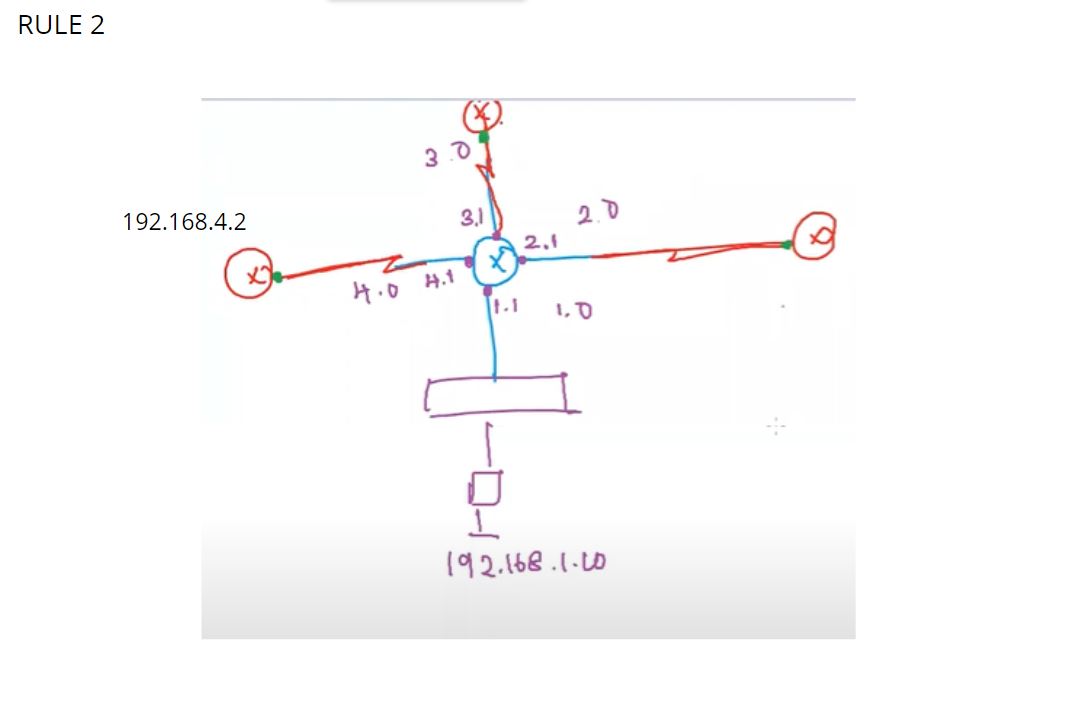 RULE 2
3.0
192.168.4.2
3.1
2.0
2.1
4.0
4.1
1.1
1.0
192.168.1.10